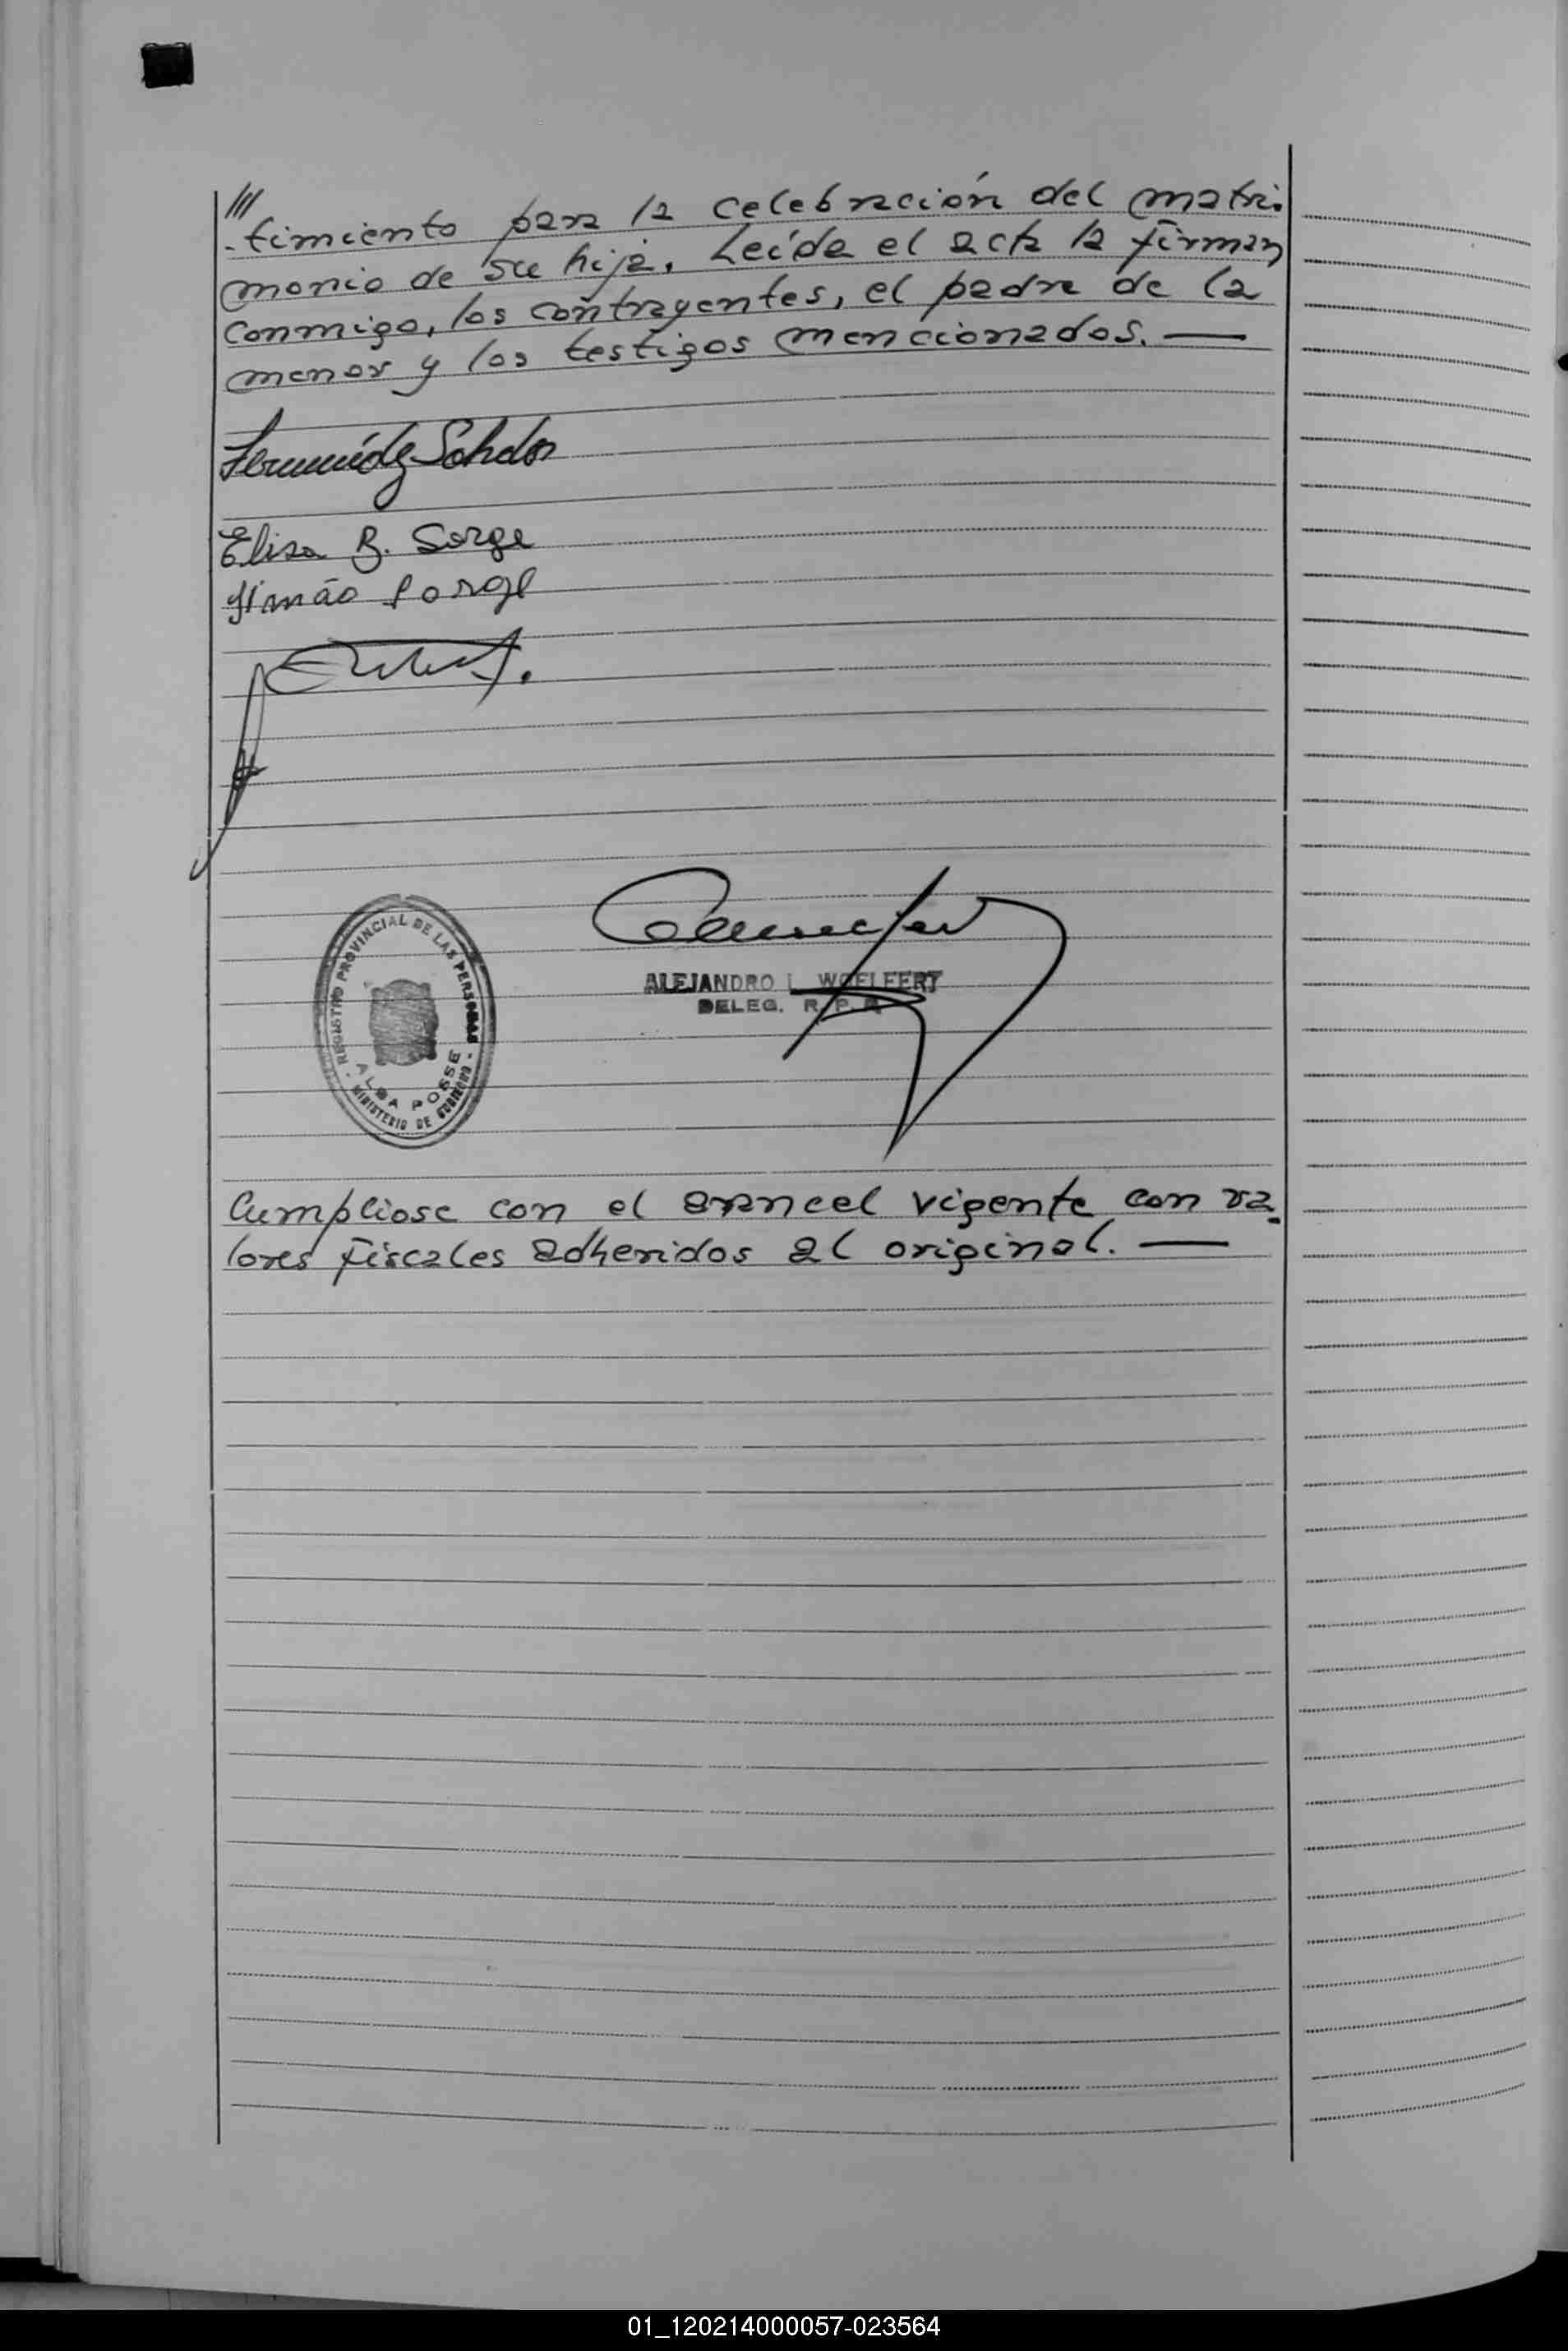 ///
-timiento para la celebración del matri-
monio de su hija. Leída el acta la firman
conmigo, los contrayentes, el padre de la
menor y los testigos mencionados. —
Elisa B. Sorge
Simão Sorge
REGISTRO PROVINCIAL DE LAS PERSONAS
ALBA POSSE
- MINISTERIO DE GOBIERNO -
ALEJANDRO L. WOELFERT
DELEG. R. P. P.
Cumpliose con el arancel vigente con va-
lores fiscales adheridos al original. —
01_120214000057-023564